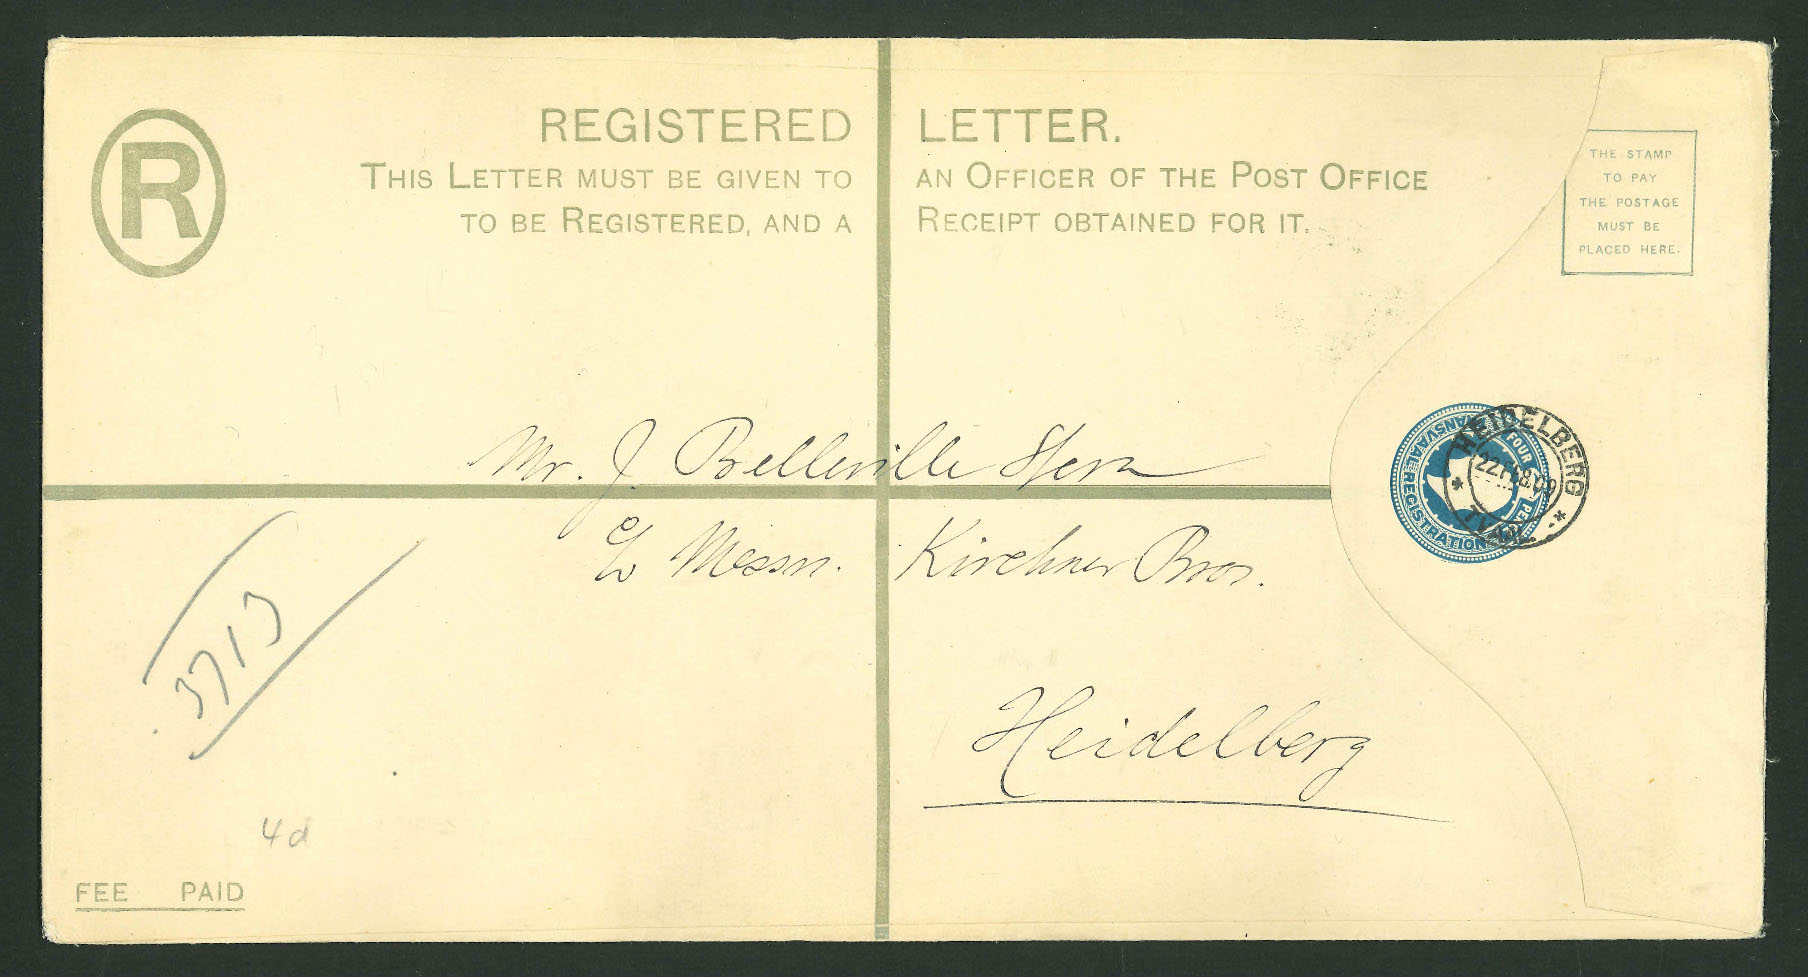 R
REGISTERED LETTER.
THIS LETTER MUST BE GIVEN TO AN OFFICER OF THE POST OFFICE
TO BE REGISTERED, AND A RECEIPT OBTAINED FOR IT.
THE STAMP
TO PAY
THE POSTAGE
MUST BE
PLACED HERE.
Mr. J Belleville Hern
c/o Messrs. Kirchner Bros.
Heidelberg
TRANSVAAL REGISTRATION FOUR PENCE
HEIDELBERG
22 FEB 09
TVAAL
3713
4d
FEE PAID